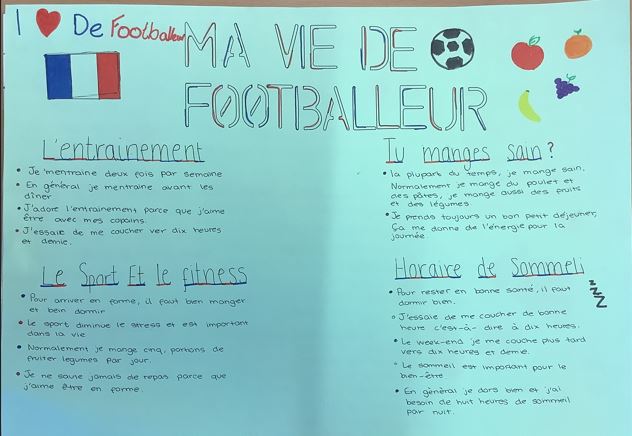 I ❤ De Footballeur
MA VIE DE
FOOTBALLEUR
L'entrainement
• Je m'entraine deux fois par semaine
• En général je mentraine avant les
dîner
• J'adore l'entrainement parce que j'aime
être avec mes copains.
• J'essaie de me coucher ver dix heures
et demie.
Tu manges sain?
• la plupart du temps, je mange sain.
Normalement je mange du poulet et
des pâtes, je mange aussi des fruits
et des légumes.
• Je prends toujours un bon petit déjeuner,
ça me donne de l'énergie pour la
journée.
Le Sport Et le fitness
• Pour arriver en forme, il faut bien manger
et bein dormir
• Le sport diminue le stress et est important
dans la vie
• Normalement je mange cinq, portions de
fruiter legumes par jour.
• Je ne saute jamais de repas parce que
j'aime être en forme.
Horaire de Sommeli
• Pour rester en bonne santé, il faut
dormir bien.
• J'essaie de me coucher de bonne
heure c'est-à-dire à dix heures.
• Le week-end je me couche plus tard
vers dix heures et demie.
• Le sommeil est important pour le
bien-être
• En général je dors bien et j'ai
besoin de huit heures de sommeil
par nuit.
z
z
z